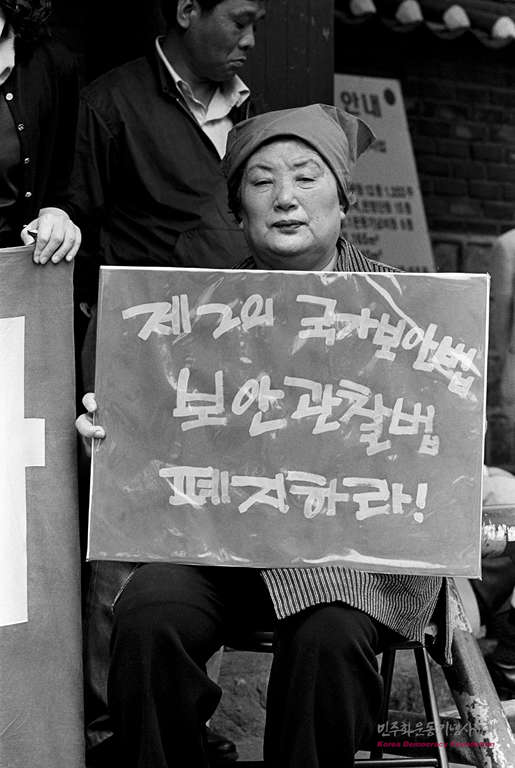 안내
제2의 국가보안법
보안관찰법
폐지하라!
민주화운동기념사
Korea Democracy Foundation